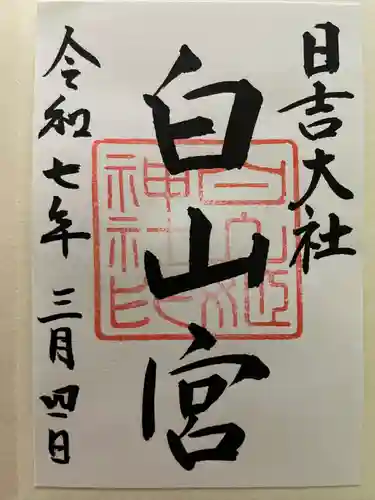 日吉大社
白山宮
令和七年 三月四日